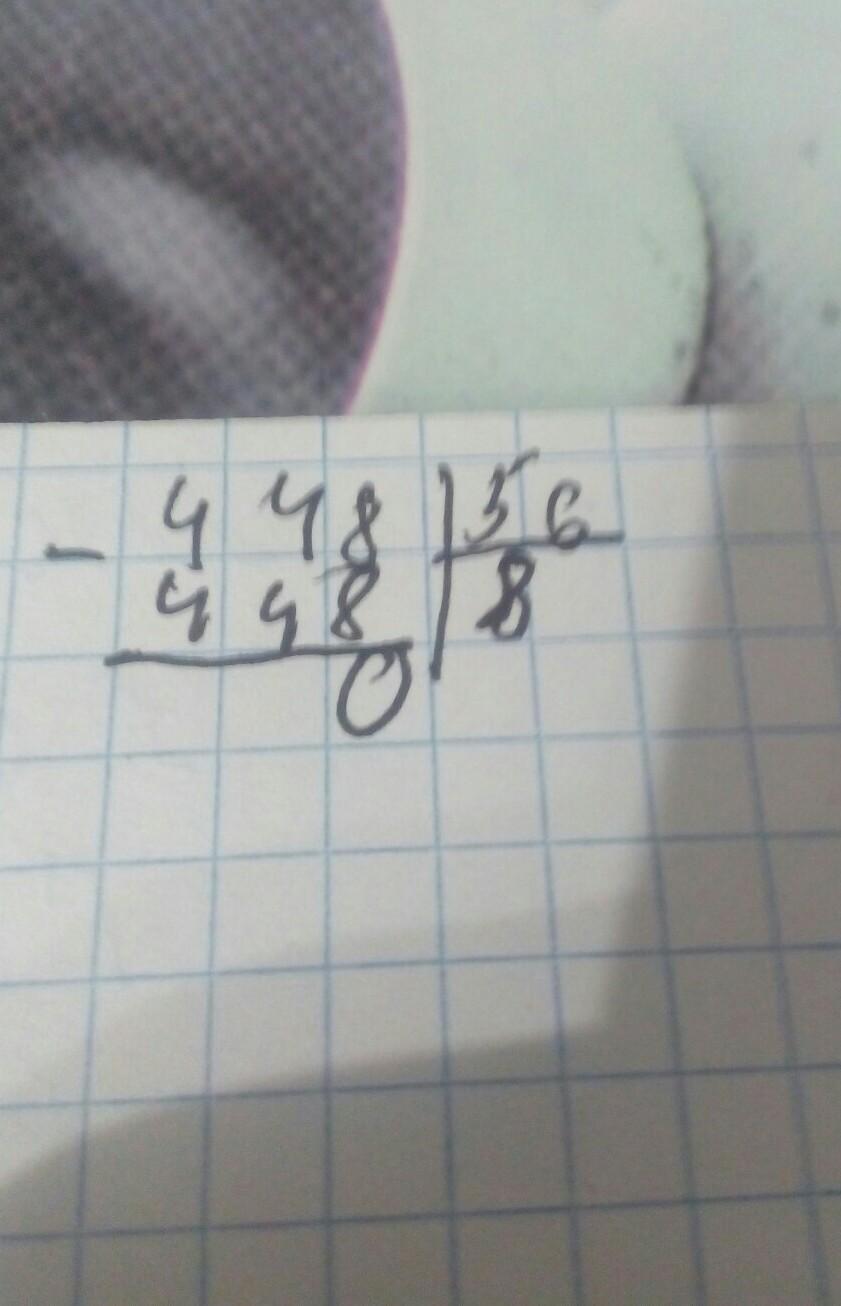 - 448 | 56
448 | 8
0